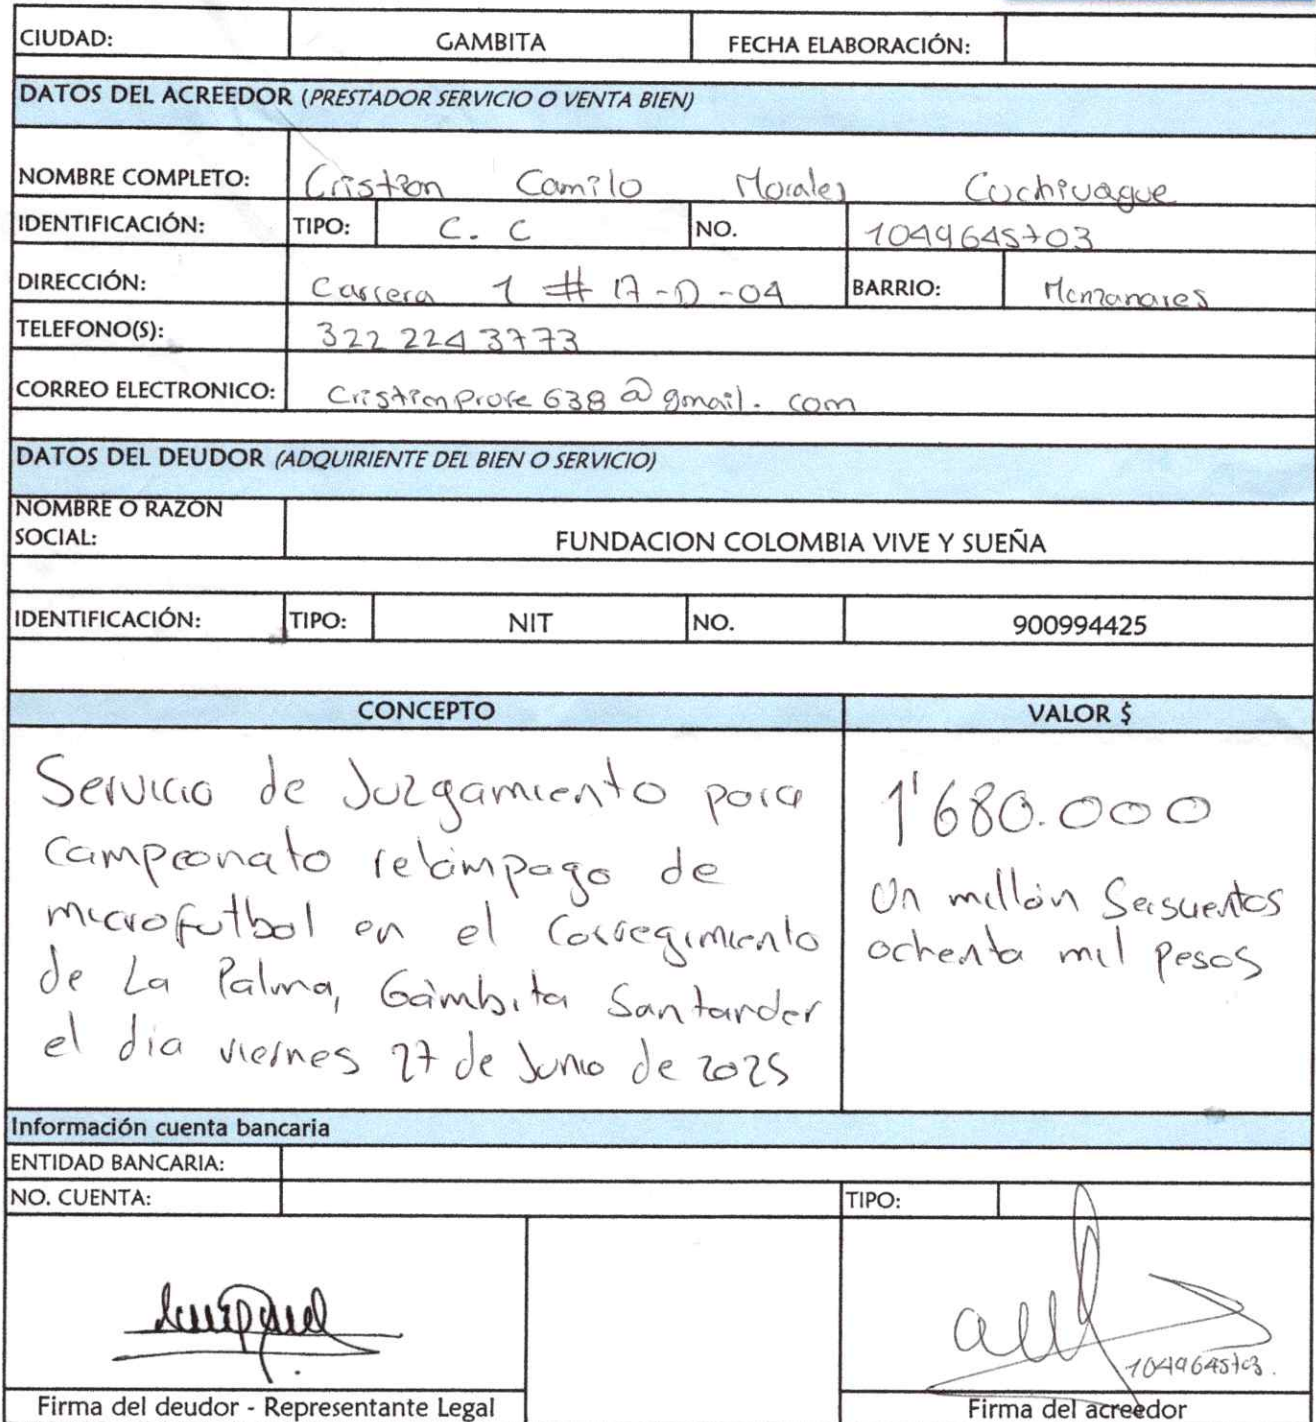 CIUDAD: GAMBITA FECHA ELABORACIÓN:
DATOS DEL ACREEDOR (PRESTADOR SERVICIO O VENTA BIEN)
NOMBRE COMPLETO: Cristian Camilo Morales Cuchivague
IDENTIFICACIÓN: TIPO: C. C NO. 1049645703
DIRECCIÓN: Carrera 1 # 17-D-04 BARRIO: Manzanares
TELEFONO(S): 322 224 3773
CORREO ELECTRONICO: Cristianprofe638@gmail.com
DATOS DEL DEUDOR (ADQUIRIENTE DEL BIEN O SERVICIO)
NOMBRE O RAZÓN
SOCIAL: FUNDACION COLOMBIA VIVE Y SUEÑA
IDENTIFICACIÓN: TIPO: NIT NO. 900994425
CONCEPTO VALOR $
Servicio de Juzgamiento para
campeonato relámpago de
microfutbol en el Corregimiento
de La Palma, Gámbita Santander
el dia viernes 27 de Junio de 2025
1'680.000
Un millón Seiscientos
ochenta mil pesos
Información cuenta bancaria
ENTIDAD BANCARIA:
NO. CUENTA: TIPO:
1049645703.
Firma del deudor - Representante Legal Firma del acreedor